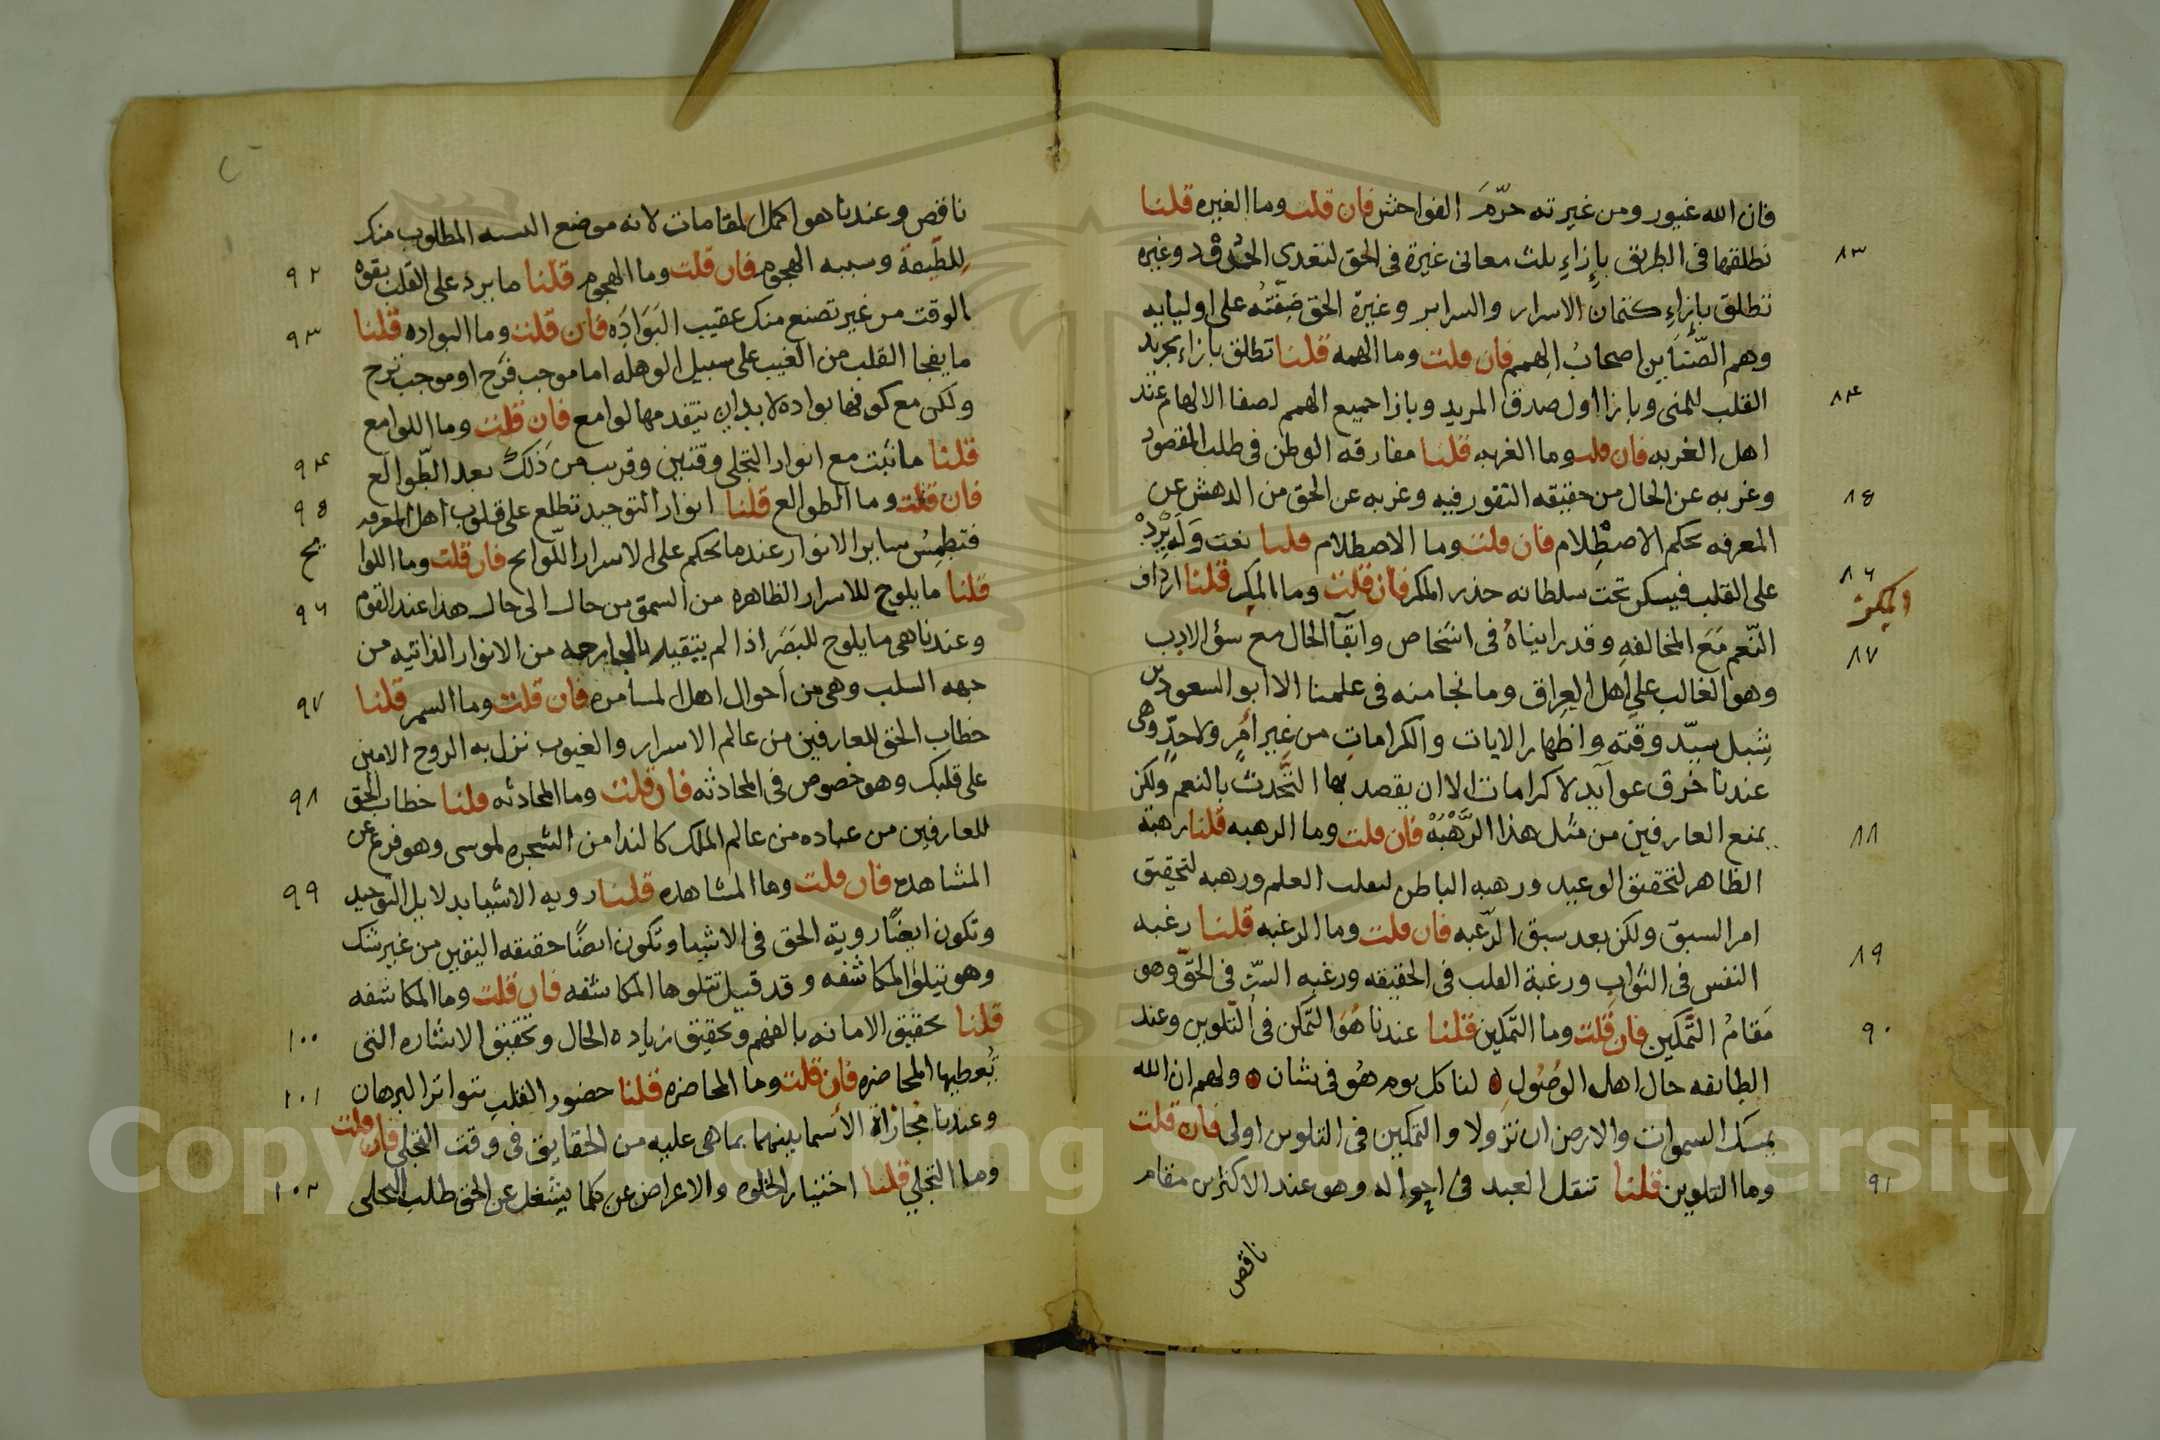 فان الله غيور ومن غيرته حرّمَ الفواحش فان قلت وما الغيره قلنا
٨٣
نطلقها فى الطريق بإزاءِ ثلث معانى غيرة فى الحق لتعدى الحدود وغيره
تطلق بإزاءِ كتمان الاسرار والسراير وغيرة الحق ضِنّتُه على اوليايه
وهم الضّنَاين اصحابُ الهمم فان قلت وما الهمه قلنا تطلق بازاء تجريد
٨٤
القلب للمنى وبازا اول صدق المريد وبازا جميع الهمم لصفا الالهام عند
اهل الغربه فان قلت وما الغربه قلنا مفارقه الوطن فى طلب المقصود
٨٥
وغربه عن الحال من حقيقه النفور فيه وغربه عن الحق من الدهش عن
المعرفه بحكم الاصطِلام فان قلت وما الاصطلام قلنا نعت وَلَهٍ يَرِدُ
٨٦
على القلب فيسكن تحت سلطانه حذر المكر فان قلت وما المكر قلنا ارداف
المكر
النّعم مَعَ المخالفهِ وقد رايناهُ فى اشخاص وابقآ الحال مع سؤ الادب
٨٧
وهو الغالب على اهل العِراق وما نجا منه فى علمنا الا ابو السعود بن
شِبل سيّد وقته واظهار الايات والكرامات من غيرِ امرٍ ولا حدٍّ وهى
عندنا خرق عوآيد لا كرامات الا ان يقصد بها التحّدث بالنعم ولكن
يمنع العارفين من مثل هذا الرَّهْبَهْ فان قلت وما الرهبه قلنا رهبة
٨٨
الظاهر لتحقيق الوعيد ورهبه الباطن لتقلب العلم ورهبه لتحقيق
امر السبق ولكن بعد سبق الرّغبه فان قلت وما الرغبه قلنا رغبه
٨٩
النفس فى الثواب ورغبة القلب فى الحقيقه ورغبه السّر فى الحقّ وهو
مَقامُ التّمكين فان قلت وما التّمكين قلنا عندنا هُوَ التّمكن فى التلوين وعند
٩٠
الطايفه حال اهل الوُصُول لنا كل يوم هُو فى شان ولهم ان الله
يمسك السموات والارض ان تزولا والتمكين فى التلوين اولى فان قلت
وما التلوين قلنا تنقل العبد فى احواله وهو عند الاكثرين مقام
٩١
ناقص
ناقص وعندنا هو اكمل المقامات لانه موضع التشبه المطلوب منك
لِلطّيفةَ وسببه الهجوم فان قلت وما الهجوم قلنا ما يرد على القلب بقوه
٩٢
الوقت من غير تصنع منك عقيب البَوَادِه فان قلت وما البواده قلنا
٩٣
ما يفجا القلب من الغيب على سبيل الوهله اما موجب فرح او موجب ترح
ولكن مع كونها بواده لا بد ان يتقدمها لوامع فان قلت وما اللوامع
قلنا ما ثبت مع انوار التجلى وقتين وقريب من ذلك بعد الطّوالع
٩٤
فان قلت وما الطوالع قلنا انوار التوحيد تطلع على قلوب اهل المعرفه
٩٥
فتطمِسُ ساير الانوار عند ما تحكم على الاسرار اللّوايح فان قلت وما اللوا
يح
قلنا ما يلوح للاسرار الظاهره من السمق من حال الى حال هذا عند القوم
٩٦
وعندنا هى ما يلوح للبَصَر اذا لم يتقيد بالجارحه من الانوار الذاتيه من
جهه السلب وهى من احوال اهل المسامره فان قلت وما السمر قلنا
٩٧
خطاب الحق للعارفين من عالم الاسرار والغيوب نزل به الروح الامين
على قلبك وهو خصوص فى المحادثه فان قلت وما المحادثه قلنا خطاب الحق
٩٨
للعارفين من عباده من عالم الملك كالندا من الشجره لموسى وهو فرع عن
المشاهده فان قلت وما المشاهده قلنا رويه الاشيا بدلايل التوحيد
٩٩
وتكون ايضًا روية الحق فى الاشيا وتكون ايضًا حقيقه اليقين من غير شك
وهو تتلو المكاشفه وقد قيل تتلوها المكاشفه فان قلت وما المكاشفه
قلنا تحقيق الامانه بالفهم وتحقيق زياده الحال وتحقيق الاشاره التى
١٠٠
تُعطيها المحاضره فان قلت وما المحاضره قلنا حضور القلب بتواتر البرهان
١٠١
وعندنا مجازاة الاسما بينهما بما هى عليه من الحقايق فى وقت التجلى فان قلت
وما التجلي قلنا اختيار الخلوه والاعراض عن كلما يشغل عن الحق طلب التحلى
١٠٢
Copyright © King Saud University